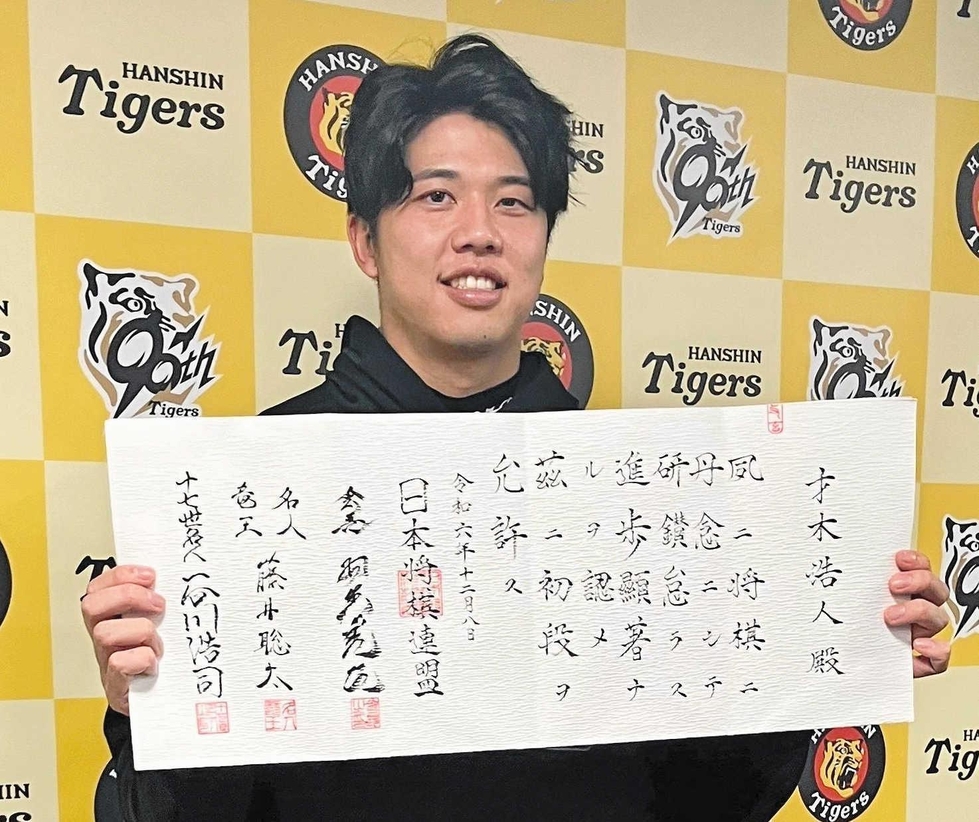 HANSHIN
Tigers
HANSHIN
Tigers
90th
Tigers
HANSHIN
Tigers
90th
Tigers
HANSHIN
HANSHIN
Tigers
才木浩人殿
夙ニ将棋ニ
丹念ニシテ
研鑚怠ラス
進歩顯著ナ
ルヲ認メ
茲ニ初段ヲ
允許ス
令和六年十二月八日
日本将棋連盟
名人
竜王
藤井聡太
十七世名人 谷川浩司
Tigers